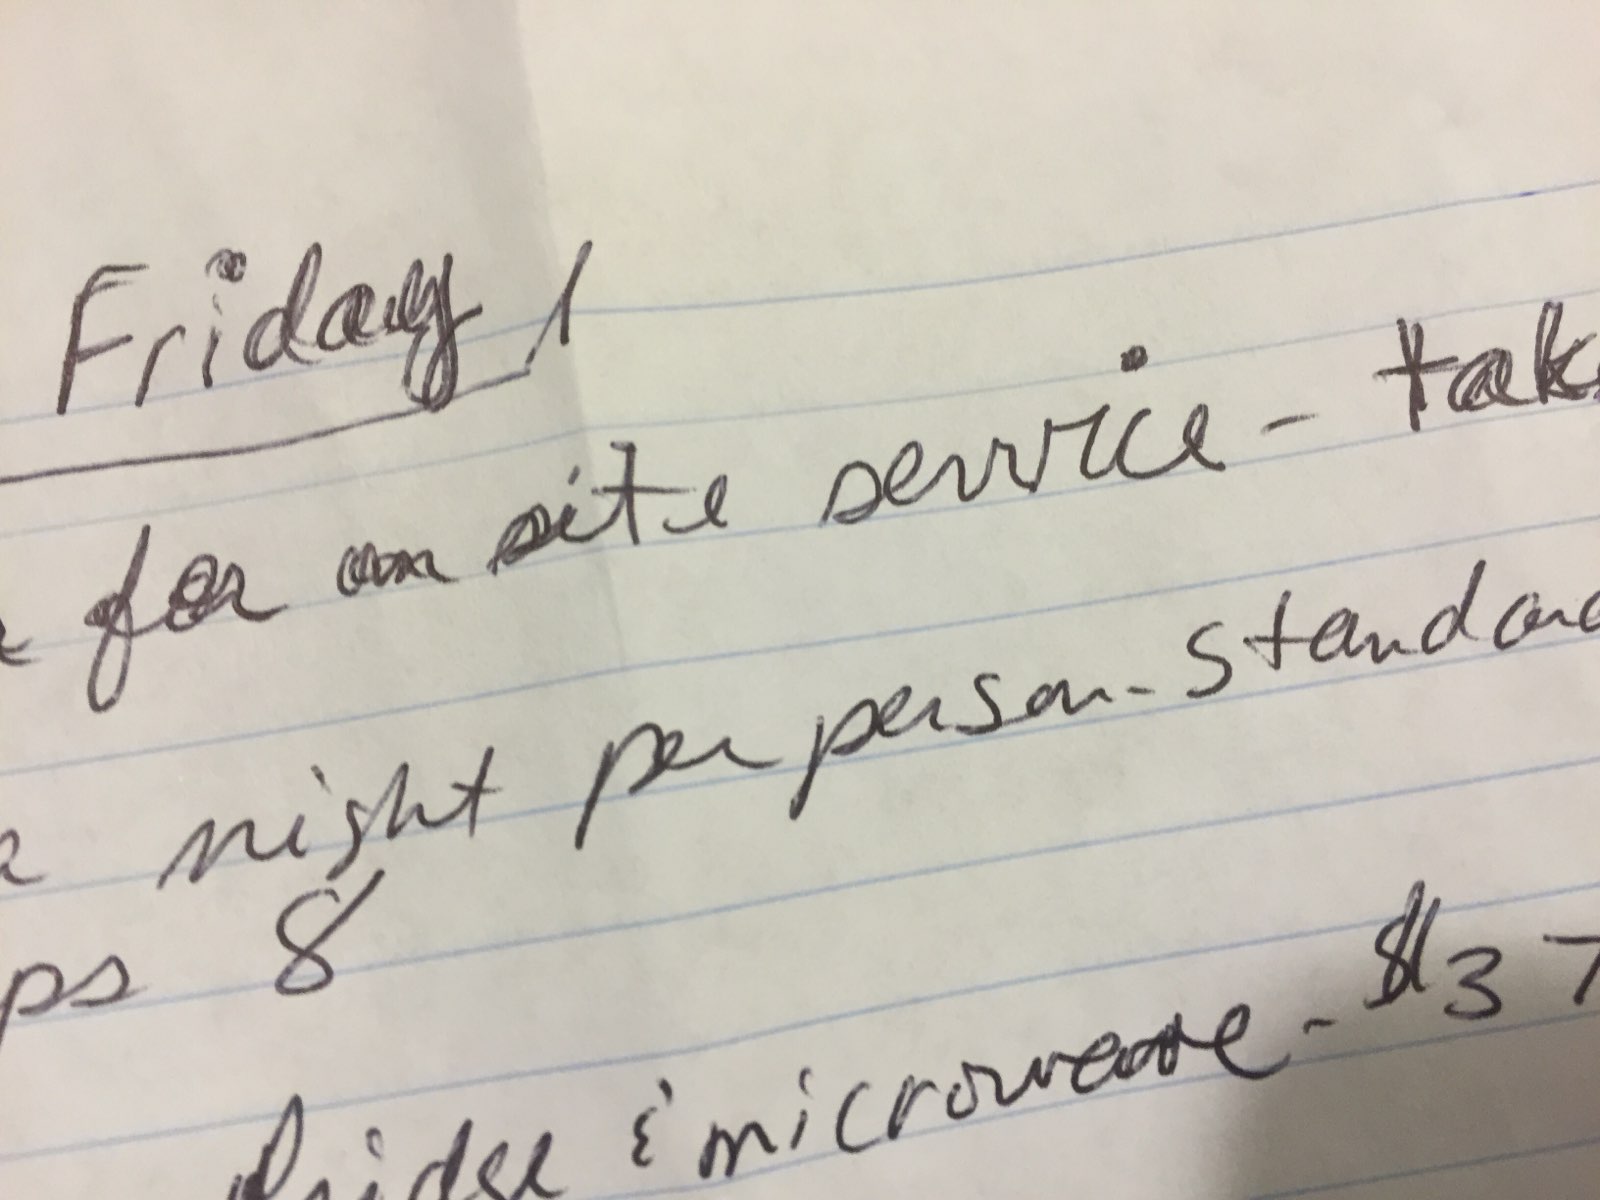 Friday
for on site service - tak
night per person - standard
ps 8
fridge & microwave - $37